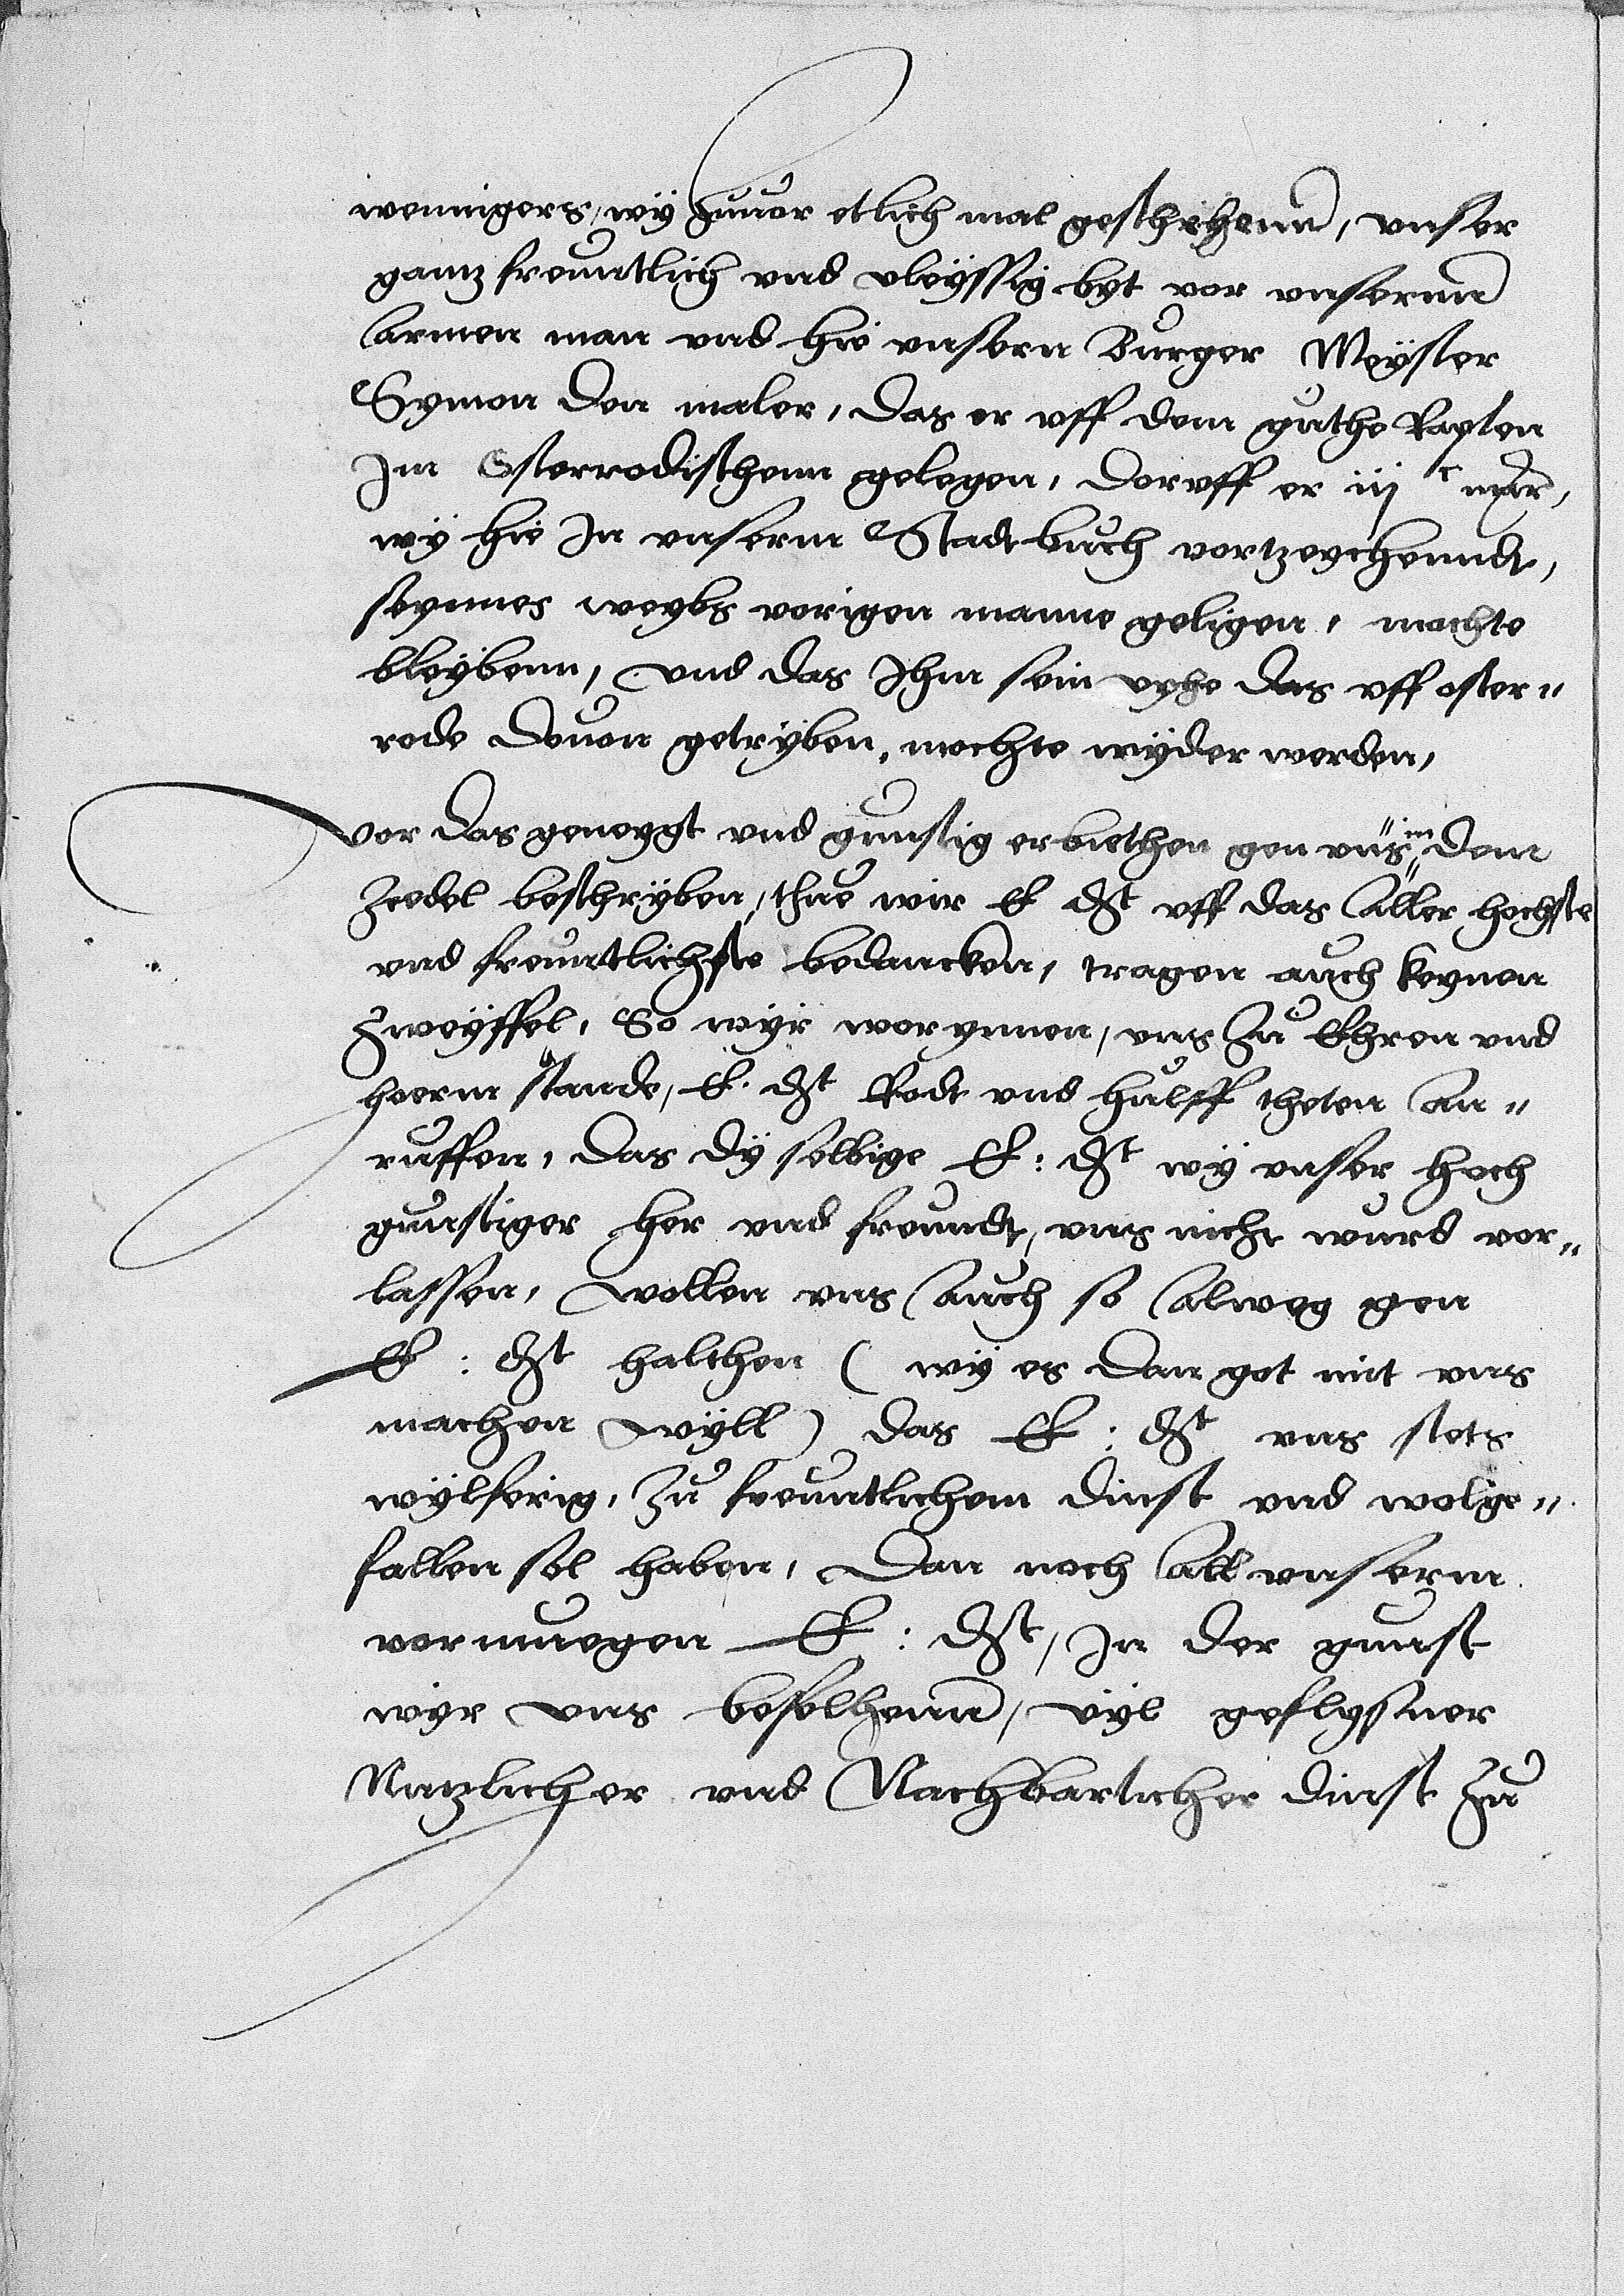 wennigers, wy zuuor etlich mal geschehenn, vnser
gantz freuntlich vnd vleyssig byt vor vnsernn
armen man vnd hie vnsern Burger Meyster
Symon den maler, das er vff dem guthe Kayten
Im Osterrodischenn gelegen, dorvff er iij c mar,
wy hie In vnserm Stadtbuch vortzeychenndt,
seynnes weybs vorigen manne geligen, mochte
bleybenn, vnd das Ihm sein vyhe das vff oster"
rode douon getryben, mochte wyder werden,
Vor das geneygt vnd gunstig erbiethen gen vns im dem
Zcedel beschryben, thue wir E gst vff das aller hochste
vnd freuntlichste bedancken, tragen auch keynen
Zweyffel, So wyr worynnen, vns zu Ehren vnd
heern stande, E. gst Rodt vnd hulff theten an"
ruffen, das dy selbige E: gst wy vnser hoch
gunstiger her vnd freundt, vns nicht wurd vor"
lassen, wollen vns auch so alweg gen
E: gst halthen (wy es dan got mit vns
machen wyll) das E: gst vns stets
wylferig, zu freuntlichem dinst vnd wolge"
fallen sol haben, dan noch all vnserm
vormuegen E: gst, In der gunst
wyr vns befelhenn, vyl geflysner
Nutzlicher vnd Nachbarlicher dinst zu